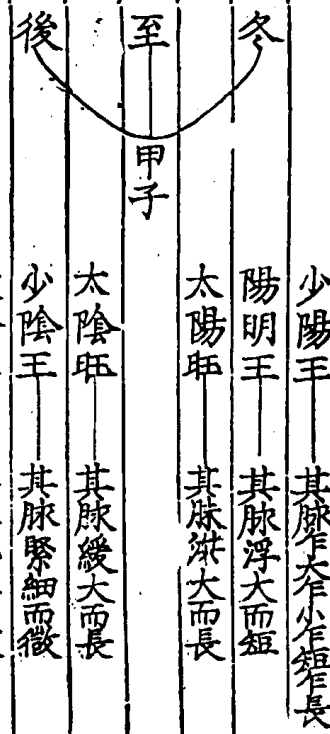 冬至後
甲子
少陽王 其脉乍大乍小乍短乍長
陽明王 其脉浮大而短
太陽旺 其脉洪大而長
太陰旺 其脉緩大而長
少陰王 其脉緊細而微